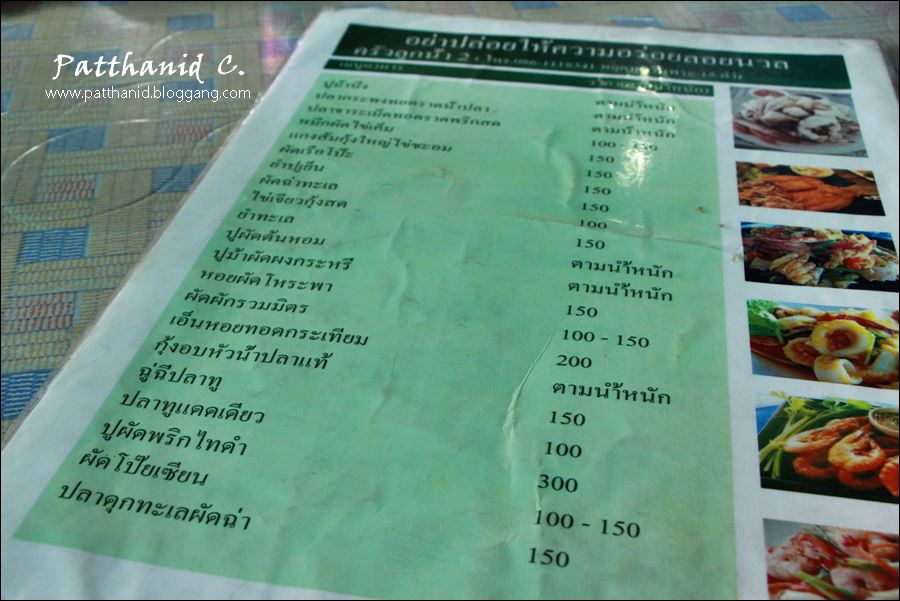 Patthanid C.
www.patthanid.bloggang.com
อย่าปล่อยให้ความอร่อยลอยนวล
2 : โทร.
เมนูอาหาร
ปูม้านึ่ง ตามน้ำหนัก
ปลากะพงทอดราดน้ำปลา ตามน้ำหนัก
ปลาจาระเม็ดทอดราดพริกสด ตามน้ำหนัก
หมึกผัดไข่เค็ม 100 - 150
แกงส้มกุ้งใหญ่ไข่ชะอม 150
ผัดเรือโป๊ะ 150
ยำปูเย็น 150
ผัดฉ่าทะเล 150
ไข่เจียวกุ้งสด 100
ยำทะเล 150
ปูผัดต้นหอม ตามน้ำหนัก
ปูม้าผัดผงกระหรี่ ตามน้ำหนัก
หอยผัดโหระพา 150
ผัดผักรวมมิตร 100 - 150
เอ็นหอยทอดกระเทียม 200
กุ้งอบหัวน้ำปลาแท้ ตามน้ำหนัก
ฉู่ฉี่ปลาทู 150
ปลาทูแดดเดียว 100
ปูผัดพริกไทดำ 300
ผัดโป๊ยเซียน 100 - 150
ปลาดุกทะเลผัดฉ่า 150